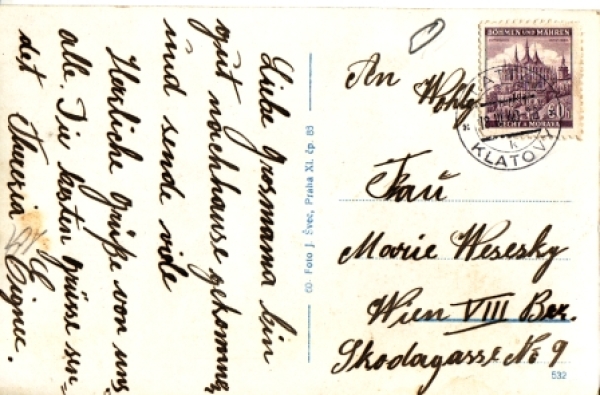 Liebe Grosmama bin
gut nachhause gekommen,
und sende vile
Herzliche Grüße von uns
alle. Die besten grüsse sen-
det
60- Foto J. Švec, Praha XI. čp. 83
BÖHMEN UND MÄHREN
ČECHY A MORAVA
KLATOVY
An Wohlg.
Frau
Marie Wesesky
Wien VIII Bez.
Skodagasse No 9
532